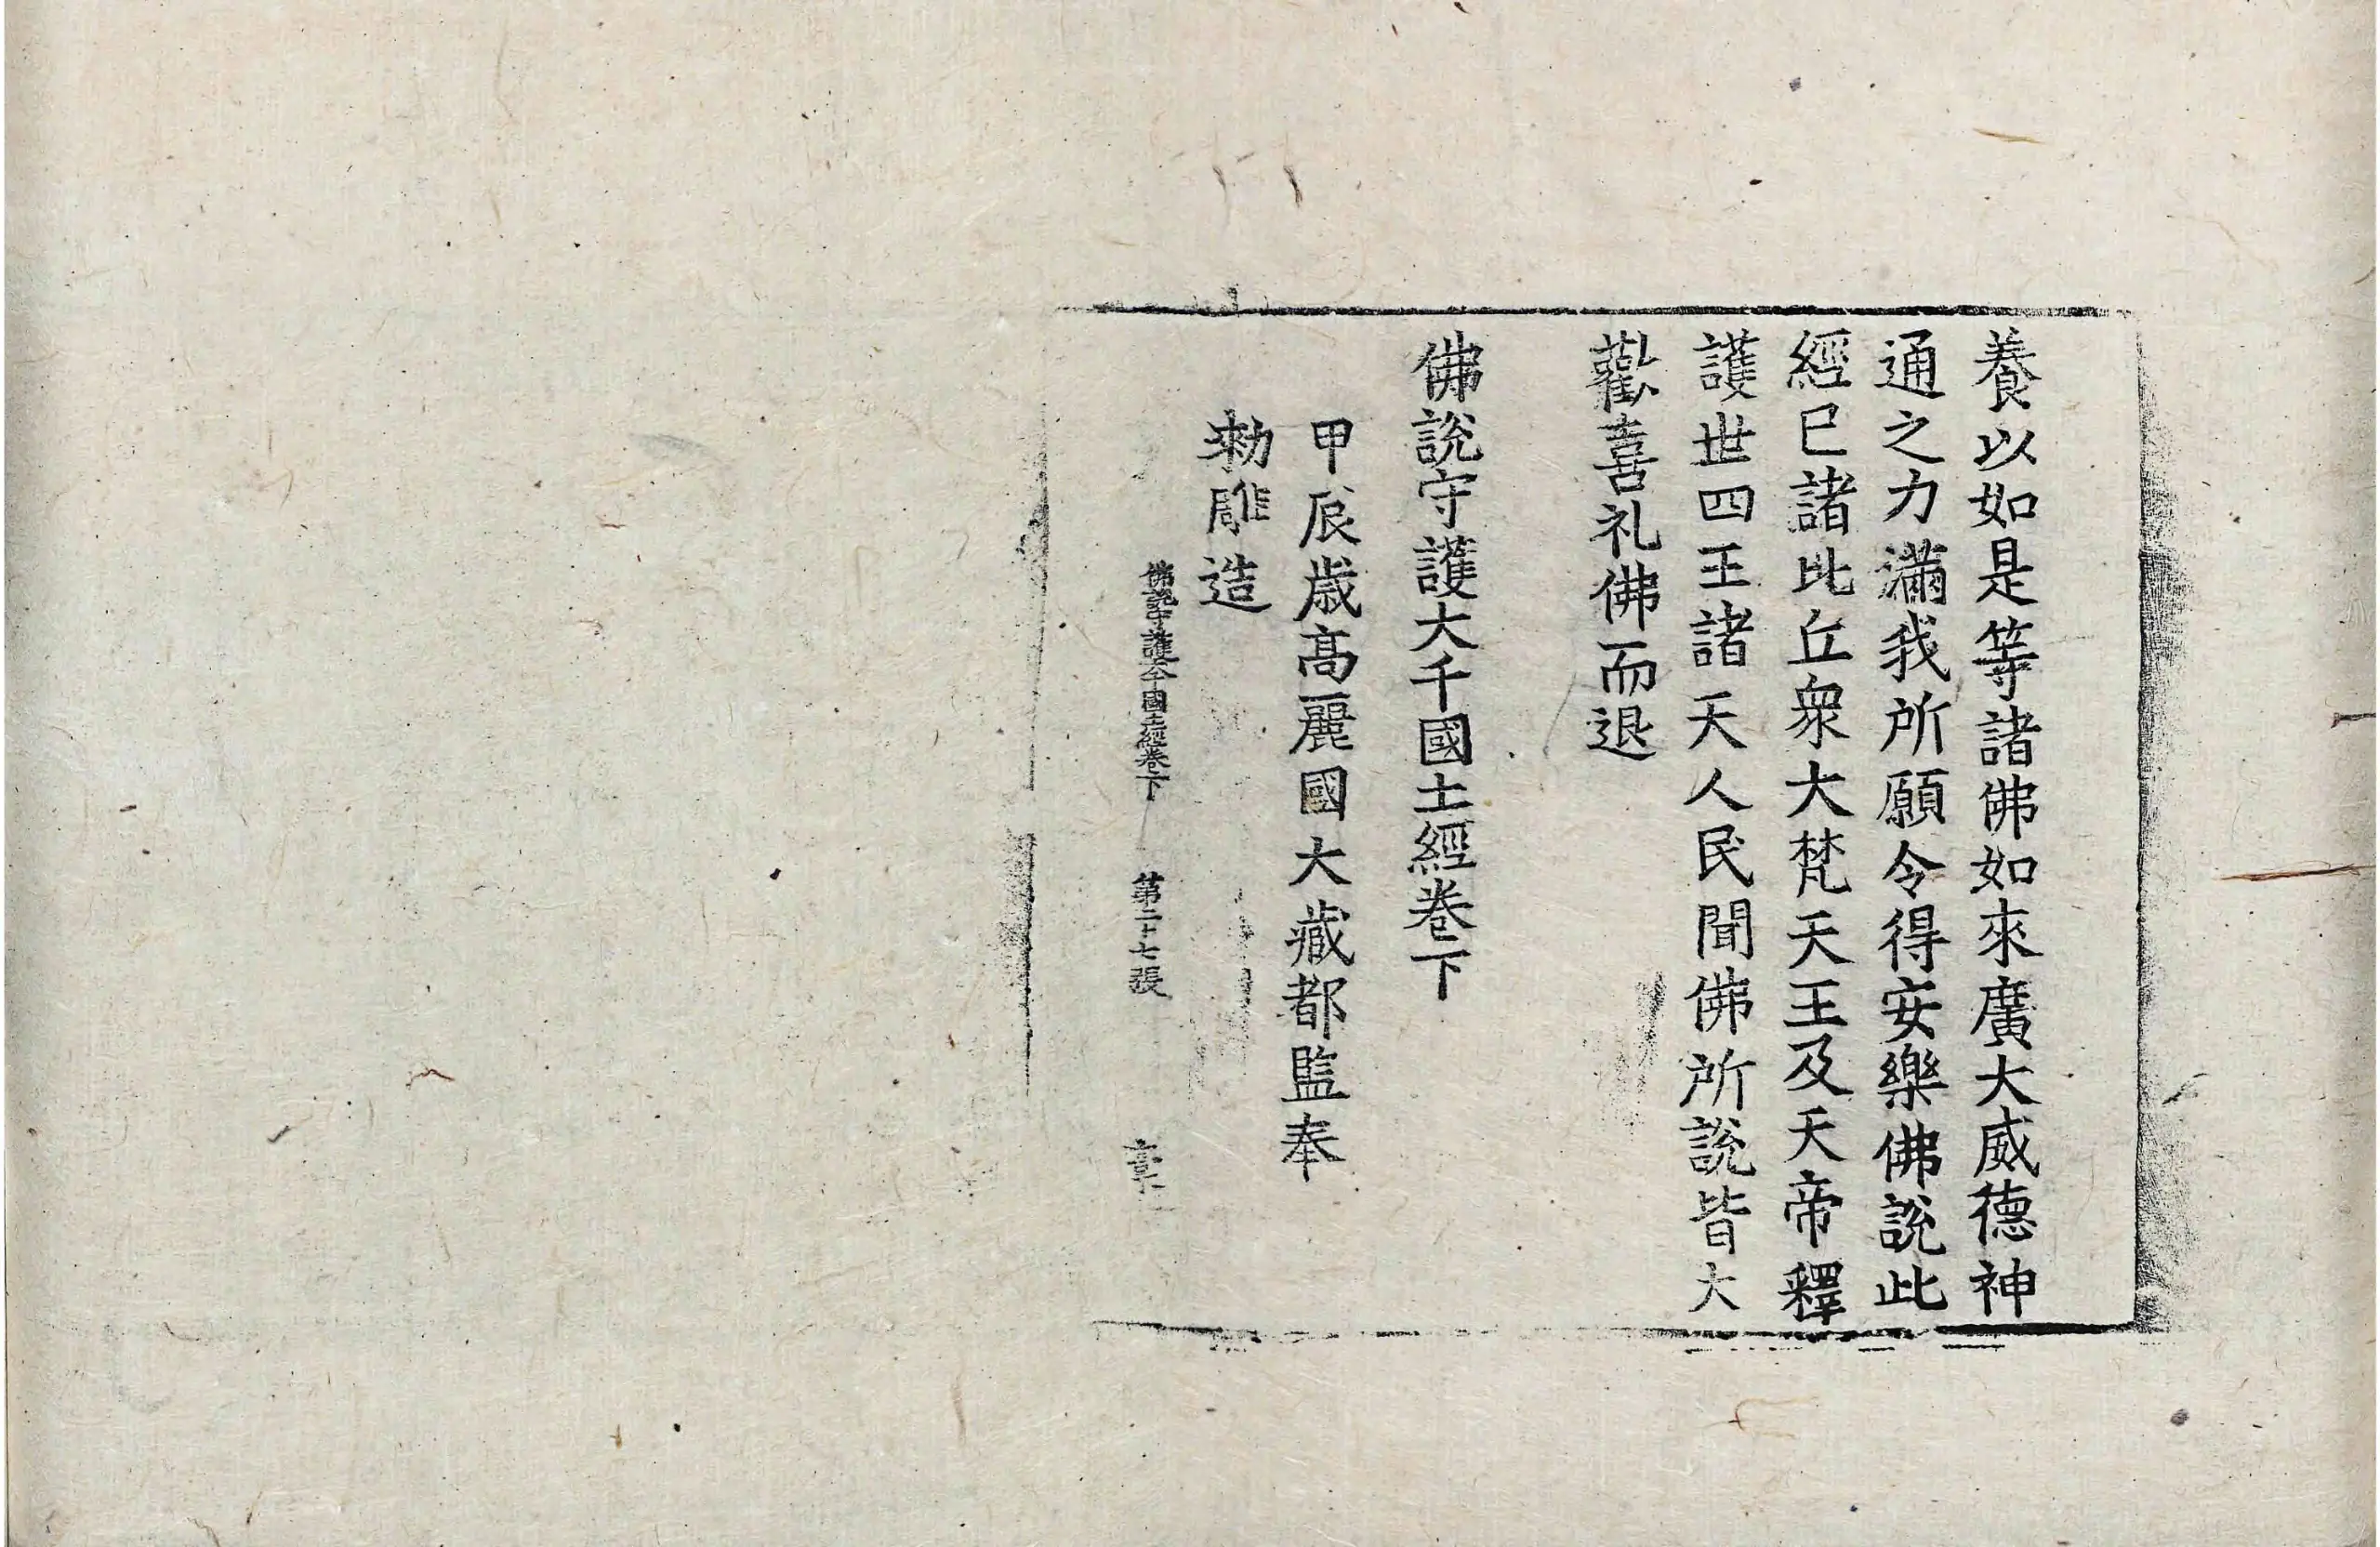 養以如是等諸佛如來廣大威德神
通之力滿我所願令得安樂佛說此
經已諸比丘衆大梵天王及天帝釋
護世四王諸天人民聞佛所說皆大
歡喜礼佛而退
佛說守護大千國土經卷下
甲辰歲高麗國大藏都監奉
勑雕造
佛說守護大千國土經卷下 第二十七張